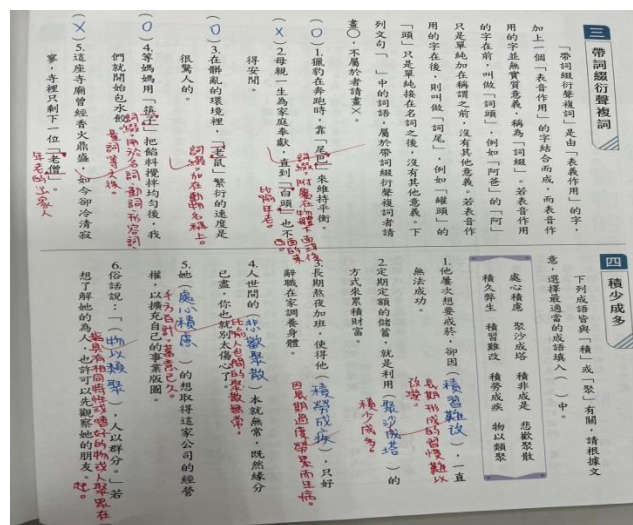 三 帶詞綴衍聲複詞
「帶詞綴衍聲複詞」是由「表義作用」的字,
加上一個「表音作用」的字結合而成,而表音作
用的字並無實質意義,稱為「詞綴」。若表音作用
的字在前,叫做「詞頭」,例如「阿爸」的「阿」
只是單純加在稱謂之前,沒有其他意義。若表音作
用的字在後,則叫做「詞尾」,例如「罐頭」的
「頭」只是單純接在名詞之後,沒有其他意義。下
列文句「 」中的詞語,屬於帶詞綴衍聲複詞者請
畫○,不屬於者請畫×。
(O)1.獵豹在奔跑時,靠「尾巴」來維持平衡。
(X)2.母親一生為家庭奉獻,直到「白頭」也不
得安閒。
比喻年老。
(O)3.在髒亂的環境裡,「老鼠」繁衍的速度是
很驚人的。
詞綴,加在動物名稱上。
(O)4.等媽媽用「筷子」把餡料攪拌均勻後,我
們就開始包水餃
(X)5.這座寺廟曾經香火鼎盛,如今卻冷清寂
寥,寺裡只剩下一位「老僧」。
年老的出家人
四 積少成多
下列成語皆與「積」或「聚」有關,請根據文
意,選擇最適當的成語填入( )中。
處心積慮 聚沙成塔 積非成是 悲歡聚散
積久弊生 積習難改 積勞成疾 物以類聚
1.他屢次想要戒菸,卻因(積習難改),一直
無法成功。
長期形成的習慣難以
改變。
2.定期定額的儲蓄,就是利用(聚沙成塔)的
方式來累積財富。
積少成多。
3.長期熬夜加班,使得他(積勞成疾),只好
辭職在家調養身體。
因長期過度勞累而生病。
4.人世間的(悲歡聚散)本就無常,既然緣分
已盡,你也就別太傷心了。
比喻人世間的聚散無常。
5.她(處心積慮)的想取得這家公司的經營
權,以擴充自己的事業版圖。
千方百計,蓄意已久。
6.俗話說:「(物以類聚),人以群分。」若
想了解她的為人,也許可以先觀察她的朋友。